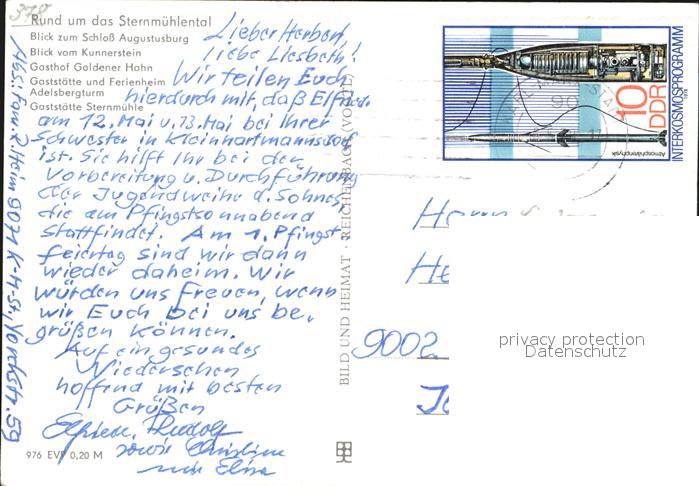 378
Rund um das Sternmühlental
Blick zum Schloß Augustusburg
Blick vom Kunnerstein
Gasthof Goldener Hahn
Gaststätte und Ferienheim
Adelsbergturm
Gaststätte Sternmühle
Lieber Herbert,
liebe Liesbeth!
Wir teilen Euch
hierdurch mit, daß Elfride
am 12. Mai u. 13. Mai bei Ihrer
Schwester in Kleinhartmannsdorf
ist. Sie hilft Ihr bei der
Vorbereitung u. Durchführung
der Jugendweihe d. Sohnes,
die am Pfingstsonnabend
stattfindet. Am 1. Pfingst
feiertag sind wir dann
wieder daheim. Wir
würden uns freuen, wenn
wir Euch bei uns be-
grüßen können.
Auf ein gesundes
Wiedersehen
hoffend mit besten
Grüßen
Rudolf
sowie Christine
976 EVP 0,20 M
Abs.: Fam. R. Heim 9071 K-M-St, Yorckstr. 59
BILD UND HEIMAT · REICHENBACH (VOGTL)
10
DDR
INTERKOSMOSPROGRAMM
1978
Atmosphärenphysik
90
Herrn
He
9002
privacy protection
Datenschutz